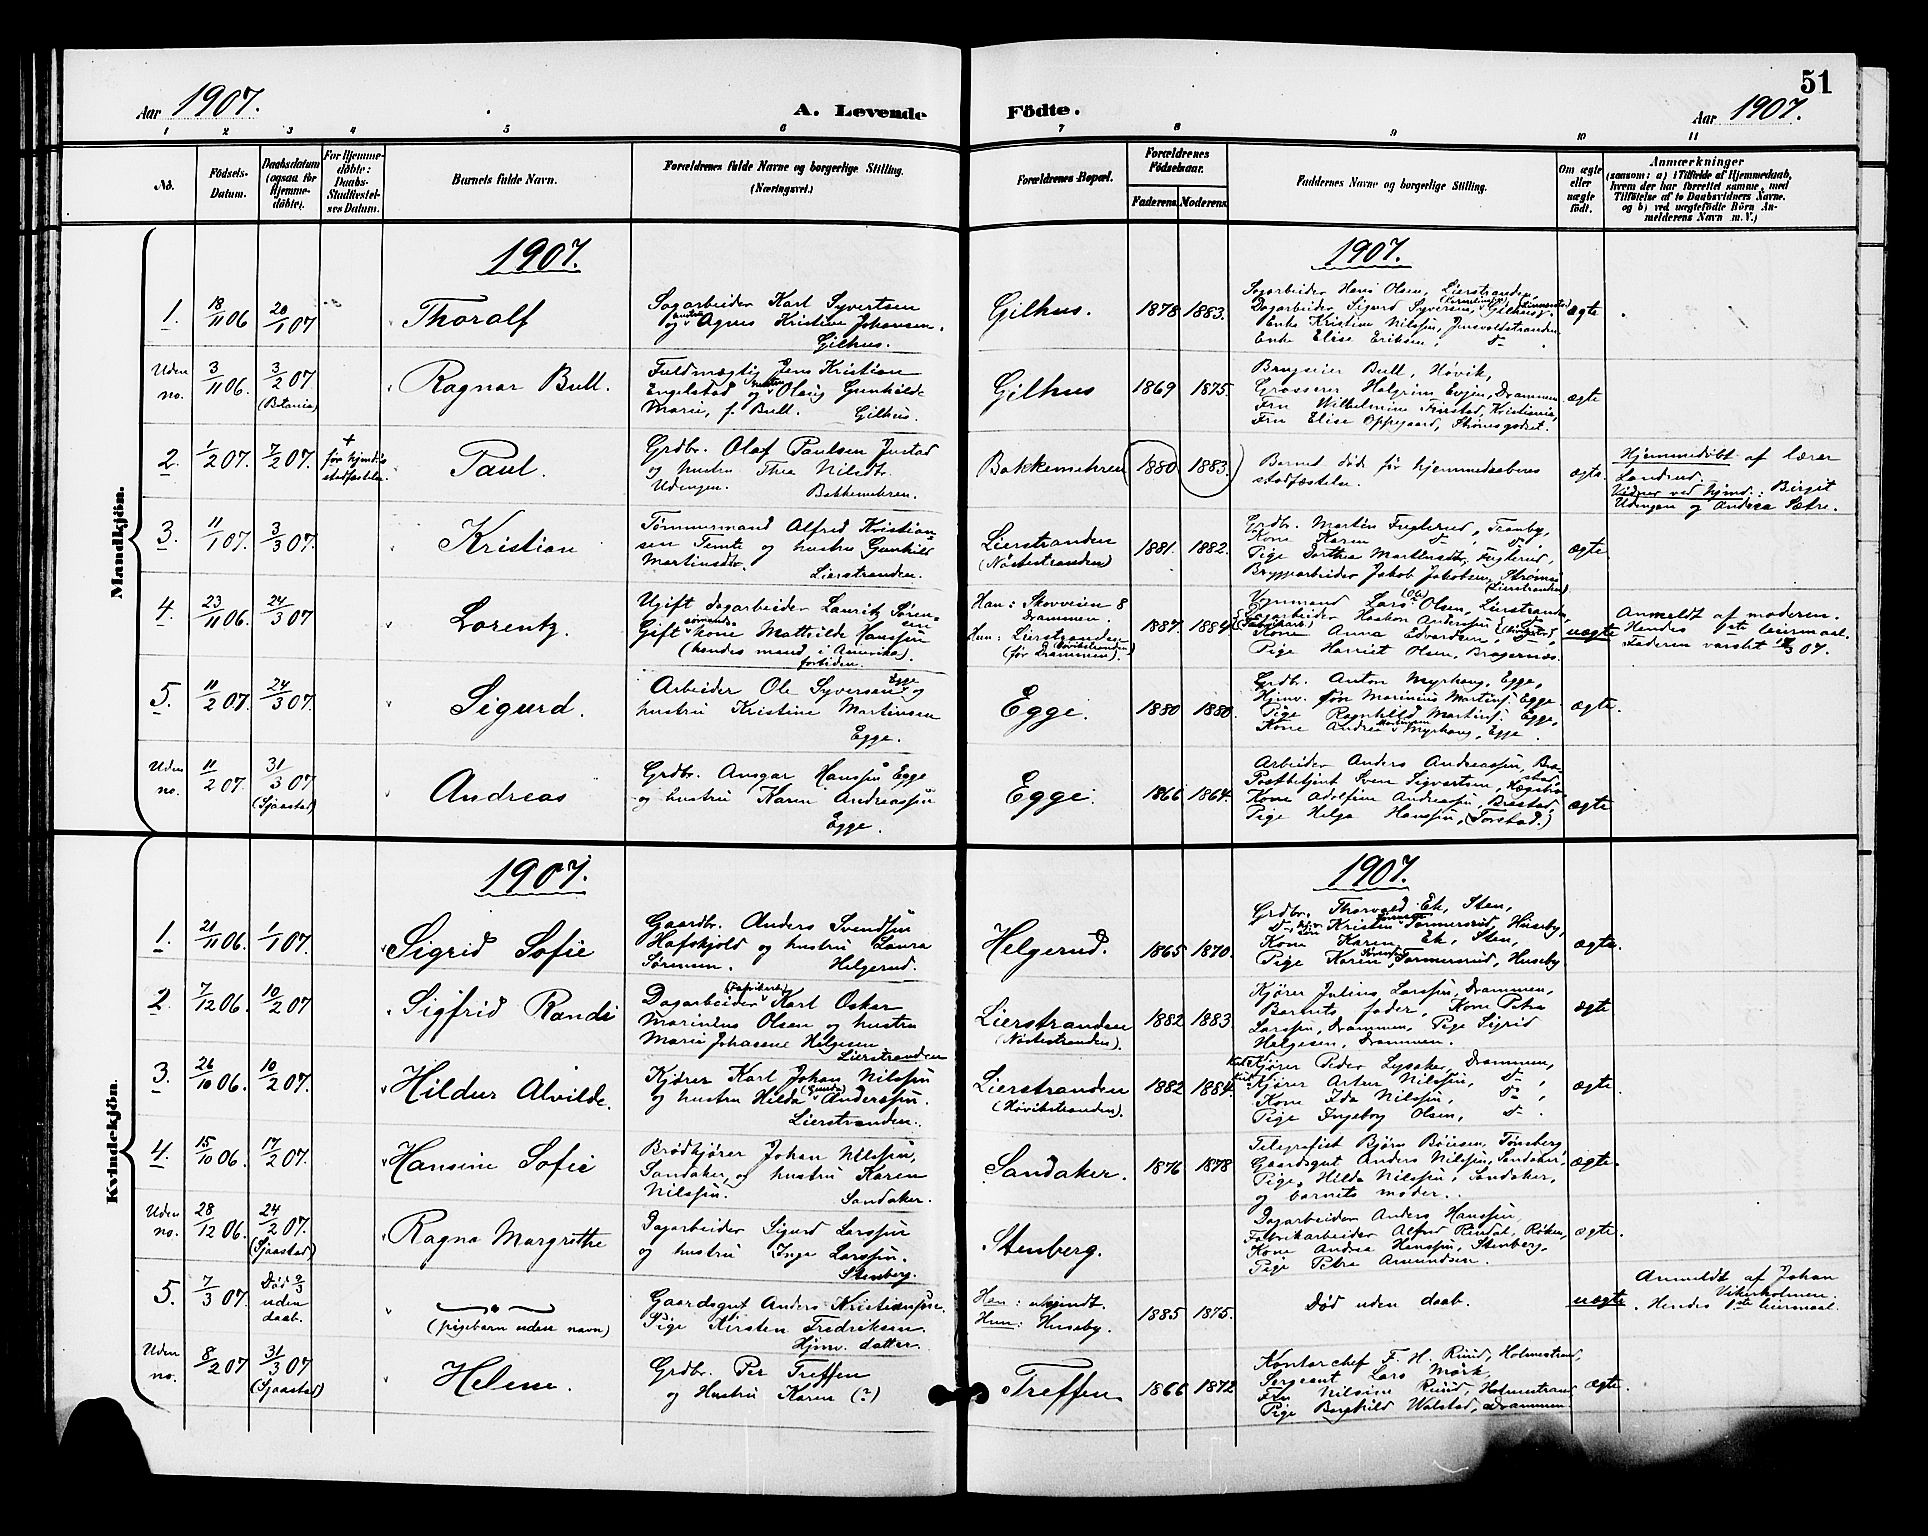 51
Aar 1907.
A. Levende Födte.
Aar 1907.
1 2 3 4 5 6 7 8 9 10 11
No.
Födsels-Datum.
Daabsdatum (ogsaa for Hjemme-döbte).
For Hjemme-döbte: Daabs-Stadfæstel-ses Datum.
Barnets fulde Navn.
Forældrenes fulde Navne og borgerlige Stilling. (Næringsvei.)
Forældrenes Bopæl.
Forældrenes Födselsaar.
Faderens. Moderens.
Faddernes Navne og borgerlige Stilling.
Om ægte eller uægte födt.
Anmærkninger
(saasom: a) i Tilfælde af Hjemmedaab, hvem der har forrettet samme, med Tilföielse af to Daabsvidners Navne. og b) ved uægtefödte Börn An-melderens Navn m. V.)
Mandkjön.
1907. 1907.
1. 18/11 06 20/1 07 Thoralf
Sagarbeider Karl Syvertsen
og hustru Agnes Kristine Johansen.
Gilhus.
Gilhus. 1878 1883.
Sagarbeider Hans Olsen, Lierstranden
Dagarbeider Sigurd Syversen, Gilhus
Enke Kristine Nilssen,
Enke Elise Eriksen, d
ægte
Uden no. 3/11 06. 3/2 07. (Betania) Ragnar Bull.
Fuldmægtig Jens Kristian
Engelstad og hustru Olaug Gunhilde
Marie, f. Bull. Gilhus.
Gilhus 1869 1875.
Brugseier Bull, Høvik,
Grosserer Halgrim Evjen, Drammen
Fru Wilhelmine Firstad, Kristiania,
Fru Elise Oppegaard, Strømsgodset.
ægte
2. 1/2 07. 7/2 07. + før hjmd.s stadfæstelse. Paul.
Grdbr. Olaf Paulsen Justad
og hustru Thea Nilsdt.
Udengen. Bakkemehren.
Bakkemehren 1880 1883.
Barnet døde før hjemmedaabens
stadfæstelse.
ægte.
Hjemmedøbt af lærer
Landrud.
Vidner ved hjmd.: Birgit
Udengen og Andrea Sætre.
3. 11/1 07. 3/3 07. Kristian
Tømmermand Alfred Kristian-
sen Temte og hustru Gunhild
Martinsdtr. Lierstranden.
Lierstranden (Nøstestranden) 1881. 1882.
Grdbr. Martin Fuglerud, Tranby,
Kone Karen d, d
Pige Dorthea Martinsdtr, Fuglerud,
Bryggarbeider Jakob Jakobsen, Strømsø
(Lierstranden)
ægte
4. 23/11 06. 24/3 07 Lorentz.
Ugift dagarbeider Lauritz Søren-
sen
Gift sømands kone Mathilde Hanssen
(hendes mand i Amerika)
fortiden.
Han: Skovveien 8
Drammen.
Hun: Lierstranden
(Høvikstranden)
(før Drammen).
1887. 1884
Lars Olsen, Lierstranden,
Haakon Anderssen,
Kone Anna Edvardsen,
Pige Harriet Olsen, Bragernæs.
uægte
Anmeldt af moderen.
Hendes 1ste leiermaal.
Faderen varslet 07.
5. 11/2 07. 24/3 07. Sigurd.
Arbeider Ole Syversen Egge og
hustru Kristine Martinsen
Egge.
Egge. 1880 1880.
Grdbr. Anton Myrhaug, Egge,
Hjmv. søn Marinius Martins. Egge
Pige Ragnhild Martins. Egge,
Kone Andrea Martinsen Myrhaug, Egge.
ægte.
Uden no. 11/2 07. 31/3 07 (Sjaastad) Andreas
Grdbr. Ansgar Hanssen Egge
og hustru Karen Andreassen
Egge.
Egge. 1866 1864.
Arbeider Anders Andreassen, Bre-
stad,
Postbetjent Sven Sigvertsen,
Kone Adolfine Andreassen, Brestad,
Pige Helga Hanssen, (Torstad.)
ægte
Kvindekjön.
1907. 1907.
1. 21/11 06. 1/1 07. Sigrid Sofie
Gaardbr. Anders Svendsen
Hafskjold og hustru Laura
Sørensen. Helgerud.
Helgerud. 1865 1870.
Grdbr. Thorvald Ek, Sten,
Kristen Tømmersrud, Huseby,
Kone Karen Ek, Sten,
Pige Karen Tømmersrud, Huseby
ægte.
2. 7/12 06. 10/2 07 Sigfrid Randi
Dagarbeider (Fabrikarb.) Karl Oskar
Marinius Olsen og hustru
Marie Johanne Helgesen.
Lierstranden
Lierstranden (Nøstestranden). 1882 1883.
Kjører Julius Larssen, Drammen,
Barnets fader, Kone Petra
Larssen, Drammen, Pige Sigrid
Helgesen, Drammen.
ægte
3. 26/10 06. 10/2 07. Hildur Alvilde.
Kjører Karl Johan Nilssen
og hustru Hilda Anderssen.
Lierstranden.
Lierstranden (Høvikstranden). 1882 1884.
Kjører Peder Lysaker, Drammen,
Kjører Artur Nilssen, d ,
Kone Ida Nilssen, d ,
Pige Ingeborg Olsen, d .
ægte.
4. 15/10 06. 17/2 07. Hansine Sofie
Brødkjører Johan Nilssen,
Sandaker, og hustru Karen
Nilssen. Sandaker.
Sandaker. 1876 1878
Telegrafist Bjørn Børesen, Tønsberg
Gaardsgut Anders Nilssen, Sandaker,
Pige Hilda Nilssen, Sandaker,
og barnets moder.
ægte.
Uden no. 28/12 06. 24/2 07. (Sjaastad) Ragna Margrethe
Dagarbeider Sigurd Larssen
og hustru Inga Larssen.
Stenberg.
Stenberg.
Dagarbeider Anders Hanssen,
Fabrikarbeider Alfred Rindal, Røken,
Kone Andrea Hanssen, Stenberg,
Pige Petra Amundsen.
ægte.
5. 7/3 07. Død 9/3 uden daab. (pigebarn uden navn)
Gaardsgut Anders Kristiansen.
Pige Kirsten Fredriksen.
Hjmv. datter.
Han: ubekjendt.
Hun: Huseby.
1885 1875.
Død uden daab.
uægte
Anmeldt af Johan
Vikerholmen.
Hendes 1ste leiermaal.
Uden no. 8/2 07 31/3 07 (Sjaastad) Helene.
Grdbr. Per Treffen
og Hustru Karen (?)
Treffen 1866 1872
Kontorchef F. H. Ruud, Holmestrand,
Sergeant Lars Mørk,
Fru Nilsine Ruud, Holmestrand
Pige Borghild Walstad, Drammen
ægte.